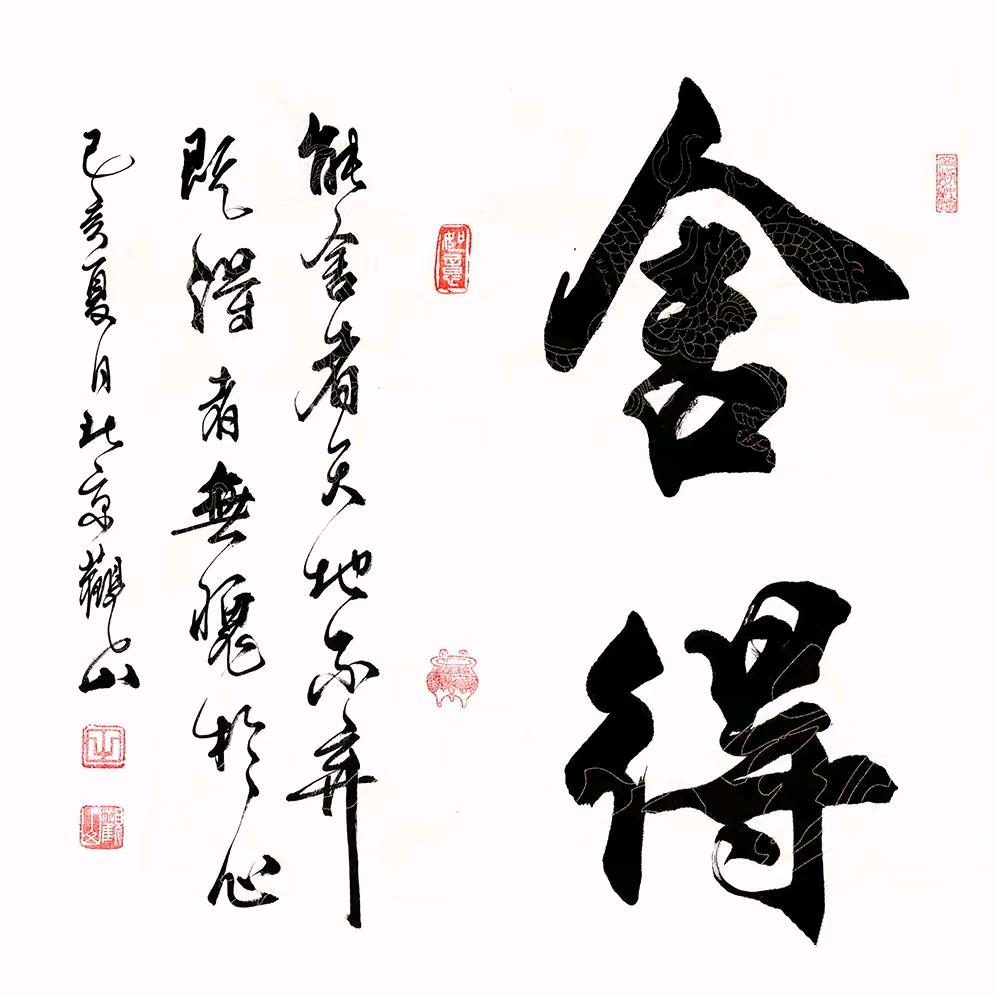 舍得
如意
能舍者天地不弃
既得者無愧於心
己亥夏日北京觀山